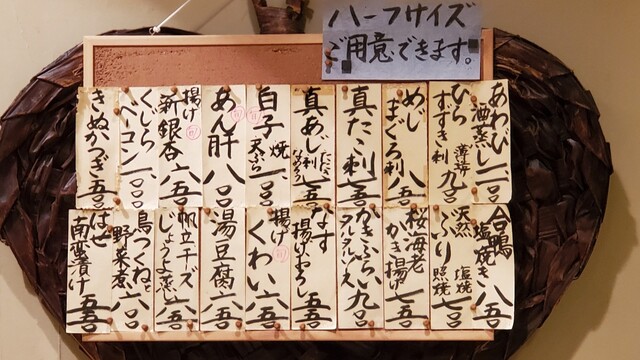 ハーフサイズ
ご用意できます。
あわび酒蒸し 一、二〇〇
ひらすずき刺 薄帯 九〇〇
めじまぐろ刺 八五〇
真たこ刺 七五〇
真あじ刺 たたき なめろう 七五〇
白子 焼 天ぷら 一、〇〇〇
あん肝 八〇〇
揚げ新銀杏 六五〇
くじらベーコン 一、〇〇〇
きぬかつぎ 五五〇
合鴨塩焼き 八五〇
天然ぶり 塩焼 照焼 七五〇
桜海老かき揚げ 七五〇
かきふらい タルタルソース 九五〇
なす揚げおろし 五五〇
揚げくわい 六五〇
湯豆腐 六五〇
帆立チーズしょうよう蒸し 八五〇
鳥つくねと野菜煮 六〇〇
はぜ南蛮漬け 五五〇